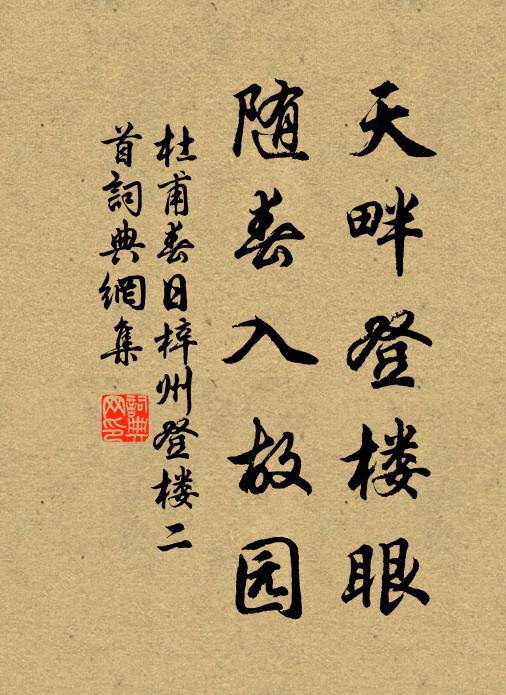 天畔登楼眼
随春入故园
杜甫春日梓州登楼二
首詞典網集
詞典
网印